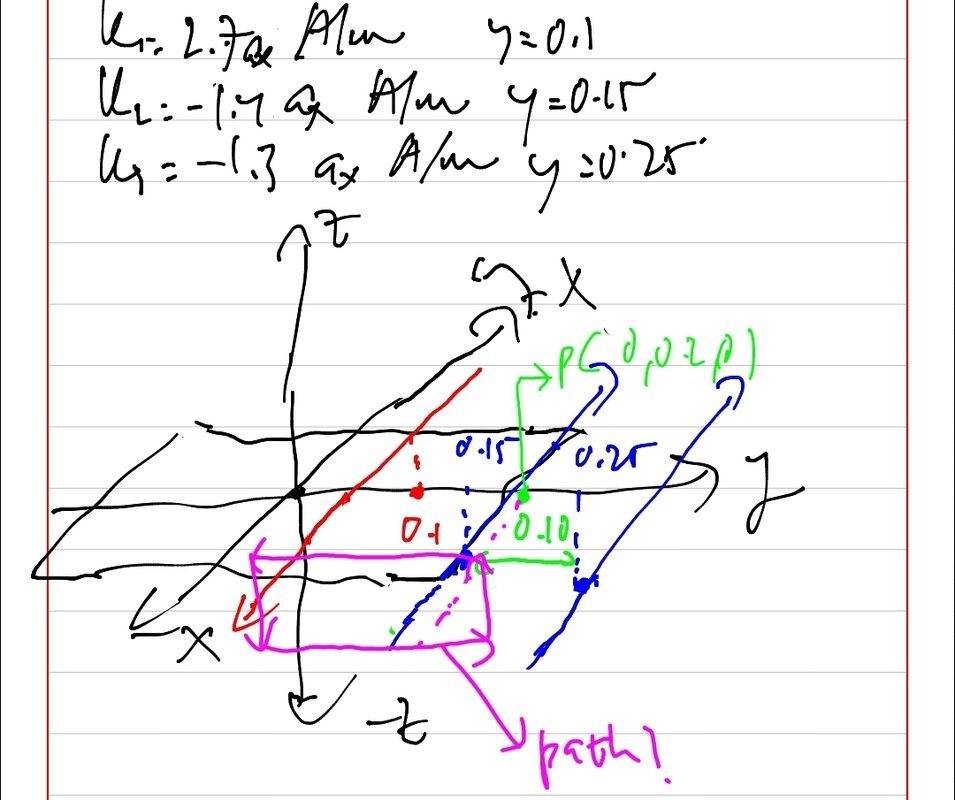 K1 = 2.7 ax A/m y=0.1
K2 = -1.4 ax A/m y=0.15
K3 = -1.3 ax A/m y=0.25
z
X
P(0,0.2,0)
0.15 0.25
y
0.1 0.10
-X
-z
path?